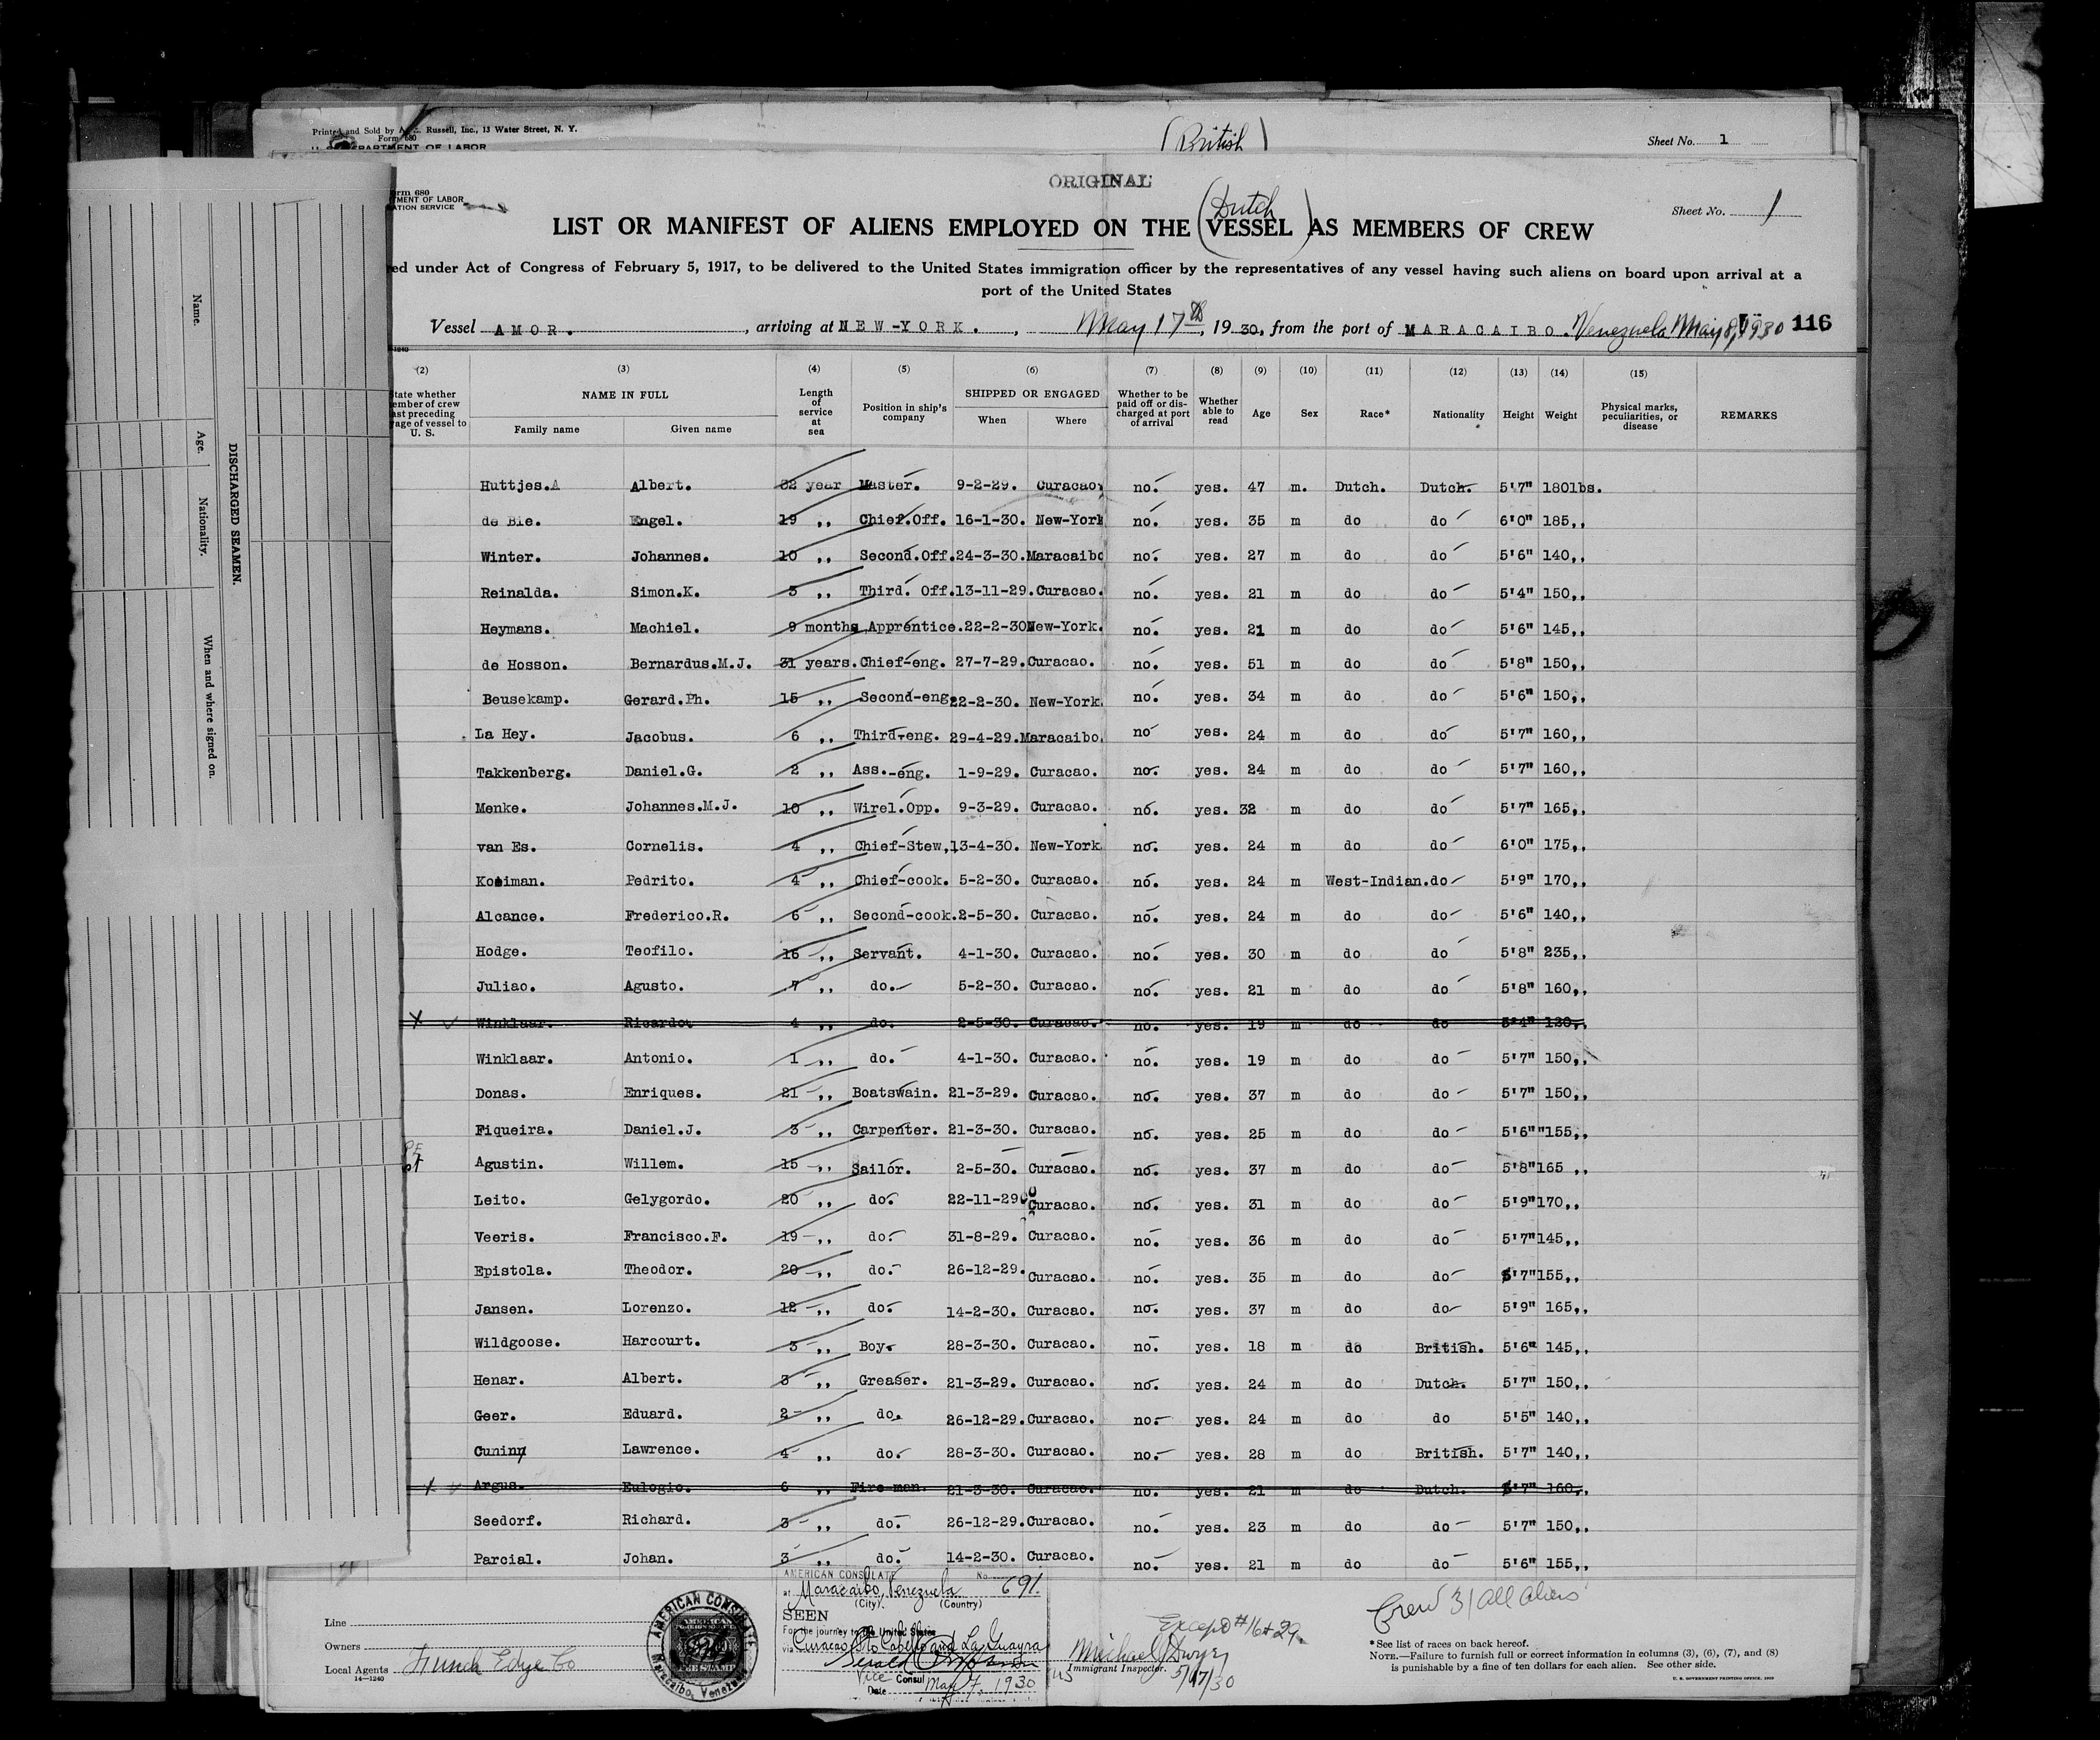 Printed and Sold by A. E. Russell, Inc., 13 Water Street, N. Y.
Form 680
U. S. DEPARTMENT OF LABOR
(British)
Sheet No. 1
ORIGINAL
orm 680
TMENT OF LABOR
ATION SERVICE
Sheet No. 1
(Dutch
LIST OR MANIFEST OF ALIENS EMPLOYED ON THE VESSEL) AS MEMBERS OF CREW
ed under Act of Congress of February 5, 1917, to be delivered to the United States immigration officer by the representatives of any vessel having such aliens on board upon arrival at a
port of the United States
Vessel AMOR. , arriving at NEW-YORK. , May 17th, 1930, from the port of MARACAIBO. Venezuela May 8, 1930 116
(2) (3) (4) (5) (6) (7) (8) (9) (10) (11) (12) (13) (14) (15)
State whether member of crew last preceding voyage of vessel to U. S.
NAME IN FULL
Family name Given name
Length of service at sea
Position in ship's company
SHIPPED OR ENGAGED
When Where
Whether to be paid off or discharged at port of arrival
Whether able to read
Age Sex Race* Nationality Height Weight
Physical marks, peculiarities, or disease
REMARKS
Huttjes.A Albert. 32 year Master. 9-2-29. Curacao. no. yes. 47 m. Dutch. Dutch. 5'7" 180lbs.
de Bie. Engel. 19 ,, Chief.Off. 16-1-30. New-York no. yes. 35 m do do 6'0" 185,,
Winter. Johannes. 10 ,, Second.Off. 24-3-30. Maracaibo no. yes. 27 m do do 5'6" 140,,
Reinalda. Simon.K. 3 ,, Third. Off. 13-11-29. Curacao. no. yes. 21 m do do 5'4" 150,,
Heymans. Machiel. 9 months Apprentice. 22-2-30 New-York. no. yes. 21 m do do 5'6" 145,,
de Hosson. Bernardus.M.J. 31 years. Chief-eng. 27-7-29. Curacao. no. yes. 51 m do do 5'8" 150,,
Beusekamp. Gerard.Ph. 15 ,, Second-eng. 22-2-30. New-York. no. yes. 34 m do do 5'6" 150,,
La Hey. Jacobus. 6 ,, Third-eng. 29-4-29. Maracaibo. no yes. 24 m do do 5'7" 160,,
Takkenberg. Daniel.G. 2 ,, Ass.-eng. 1-9-29. Curacao. no. yes. 24 m do do 5'7" 160,,
Menke. Johannes.M.J. 10 ,, Wirel.Opp. 9-3-29. Curacao. no. yes. 32 m do do 5'7" 165,,
van Es. Cornelis. 4 ,, Chief-Stew, 13-4-30. New-York no. yes. 24 m do do 6'0" 175,,
Kooiman. Pedrito. 4 ,, Chief-cook. 5-2-30. Curacao. no. yes. 24 m West-Indian. do 5'9" 170,,
Alcance. Frederico.R. 6 ,, Second-cook. 2-5-30. Curacao. no. yes. 24 m do do 5'6" 140,,
Hodge. Teofilo. 16 ,, Servant. 4-1-30. Curacao. no. yes. 30 m do do 5'8" 235,,
Juliao. Agusto. 7 ,, do. 5-2-30. Curacao. no. yes. 21 m do do 5'8" 160,,
X ✓ Winklaar. Ricardo. 4 ,, do. 2-5-30. Curacao. no. yes. 19 m do do 5'4" 120,,
Winklaar. Antonio. 1 ,, do. 4-1-30. Curacao. no. yes. 19 m do do 5'7" 150,,
Donas. Enriques. 21 ,, Boatswain. 21-3-29. Curacao. no. yes. 37 m do do 5'7" 150,,
Fiqueira. Daniel.J. 3 ,, Carpenter. 21-3-30. Curacao. no. yes. 25 m do do 5'6" "155,,
Agustin. Willem. 15 ,, Sailor. 2-5-30. Curacao. no. yes. 37 m do do 5'8" 165 ,,
Leito. Gelygordo. 20 ,, do. 22-11-29 Curacao. no. yes. 31 m do do 5'9" 170,,
Veeris. Francisco.F. 19 ,, do. 31-8-29. Curacao. no. yes. 36 m do do 5'7" 145,,
Epistola. Theodor. 20 ,, do. 26-12-29. Curacao. no. yes. 35 m do do 5'7" 155,,
Jansen. Lorenzo. 12 ,, do. 14-2-30. Curacao. no. yes. 37 m do do 5'9" 165,,
Wildgoose. Harcourt. 3 ,, Boy. 28-3-30. Curacao. no. yes. 18 m do British. 5'6" 145,,
Henar. Albert. 3 ,, Greaser. 21-3-29. Curacao. no. yes. 24 m do Dutch. 5'7" 150,,
Geer. Eduard. 2 ,, do. 26-12-29. Curacao. no. yes. 24 m do do 5'5" 140,,
Cuniny Lawrence. 4 ,, do. 28-3-30. Curacao. no. yes. 28 m do British. 5'7" 140,,
X ✓ Argus. Eulogio. 6 ,, Fire man. 21-3-30. Curacao. no. yes. 21 m do Dutch. 5'7" 160,,
Seedorf. Richard. 3 ,, do. 26-12-29. Curacao. no. yes. 23 m do do 5'7" 150,,
Parcial. Johan. 3 ,, do. 14-2-30. Curacao. no. yes. 21 m do do 5'6" 155,,
DISCHARGED SEAMEN.
Name. Age. Nationality. When and where signed on.
Line
Owners
Local Agents Funch Edye Co
14—1240
AMERICAN CONSULATE
Maracaibo, Venezuela
FEE STAMP
AMERICAN CONSULATE No. 691.
at Maracaibo, Venezuela
(City) (Country)
SEEN
For the journey to the United States
via Curacao, Pto Cabello and La Guayra
Vice Consul
Date May 7, 1930
Except #16 + 29.
Michael J Dwyer
Immigrant Inspector.
5/17/30
Crew 31 all aliens
* See list of races on back hereof.
NOTE.—Failure to furnish full or correct information in columns (3), (6), (7), and (8)
is punishable by a fine of ten dollars for each alien. See other side.
U. S. GOVERNMENT PRINTING OFFICE